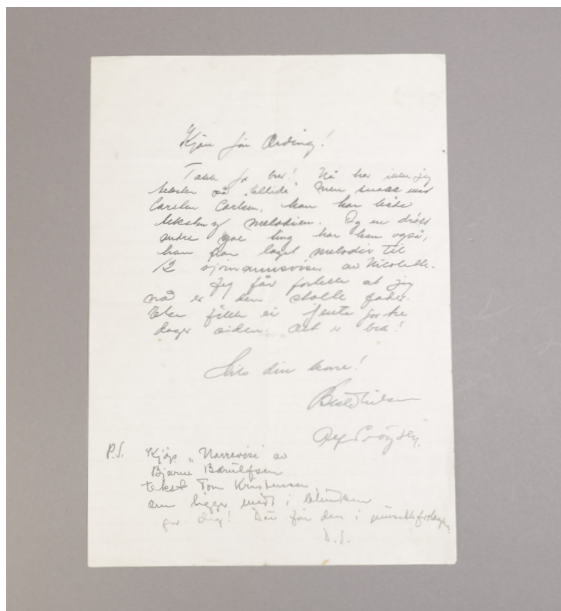 Kjære Jan Ording!
Takk for brev! Nå har ikke jeg
teksten på "Elida" men snakk med
Carsten Carlsen, han har både
teksten og melodien. Og en dråss
andre gode ting har han også,
han har laget melodier til
12 sjømannsviser av Nicolette.
Jeg får fortelle at jeg
nå er den stolte fader.
til ei jente for tre
dager siden. Det er bra!
Hils din kone!
Beste hilsen
Alf Prøysen,
P.S. Kjøp "Narrevise" av
Bjarne Børulfsen
tekst Tom Kristensen,
den ligger midt i blinken
for deg! Du får den i musikkforlaget
D.S.